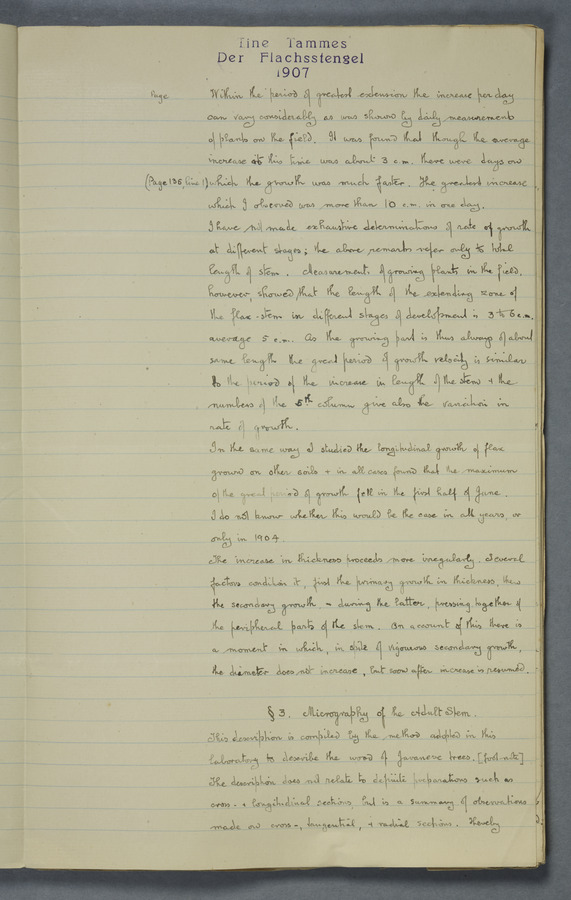 Tine Tammes
Der Flachsstengel
1907
Page
Within the period of greatest extension the increase per day
can vary considerably as was shown by daily measurements
of plants on the field. It was found that though the average
increase at this time was about 3 c.m. there were days on
(Page 135, line 1) which the growth was much faster. The greatest increase
which I observed was more than 10 c.m. in one day.
I have not made exhaustive determinations of rate of growth
at different stages; the above remarks refer only to total
length of stem. Measurements of growing plants in the field,
however, showed that the length of the extending zone of
the flax-stem in different stages of development is 3 to 6 c.m.
average 5 c.m.. As the growing part is thus always of about
same length the great period of growth velocity is similar
to the period of the increase in length of the stem + the
numbers of the 5th column give also the variation in
rate of growth.
In the same way I studied the longitudinal growth of flax
grown on other soils + in all cases found that the maximum
of the great period of growth fell in the first half of June.
I do not know whether this would be the case in all years, or
only in 1904.
The increase in thickness proceeds more irregularly. Several
factors condition it, first the primary growth in thickness, then
the secondary growth - during the latter, pressing together of
the peripheral parts of the stem. On account of this there is
a moment in which, in spite of vigorous secondary growth,
the diameter does not increase, but soon after increase is resumed.
§ 3. Micrography of the Adult Stem.
This description is compiled by the method adopted in this
laboratory to describe the wood of Javanese trees. [foot-note]
The description does not relate to definite preparations such as
cross- + longitudinal sections, but is a summary of observations
made on cross-, tangential, + radial sections. Thereby